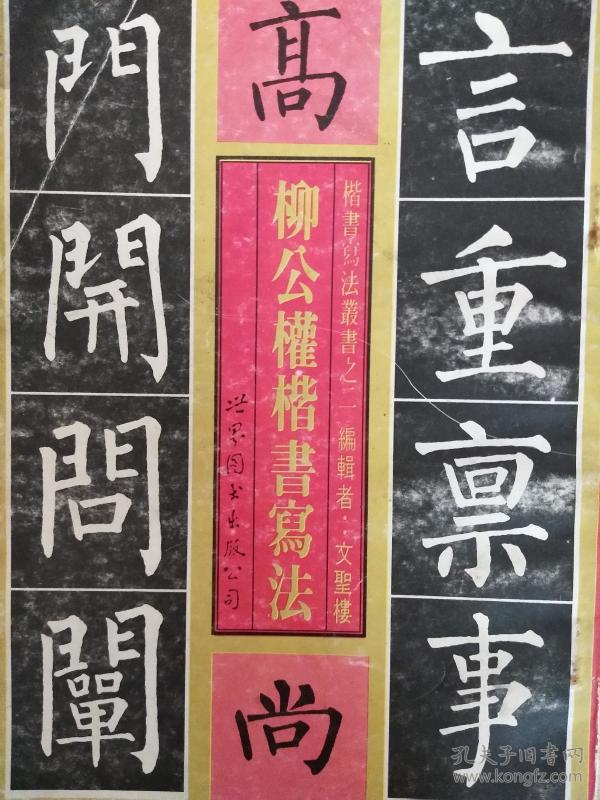 言重禀事
髙
楷書寫法叢書之二 編輯者:文聖樓
柳公權楷書寫法
世界图书出版公司
尚
門開問闡
孔夫子旧书网
www.kongfz.com